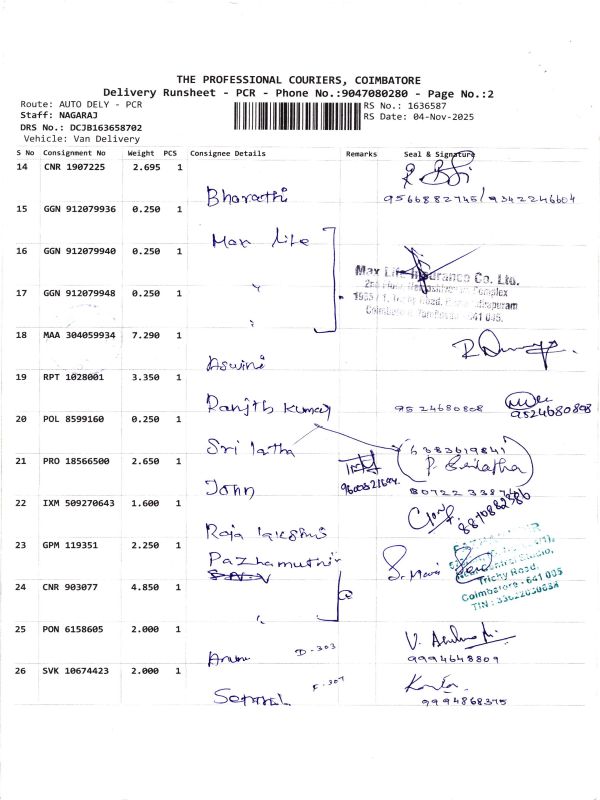 THE PROFESSIONAL COURIERS, COIMBATORE
Delivery Runsheet - PCR - Phone No.:9047080280 - Page No.:2
Route: AUTO DELY - PCR
RS No.: 1636587
Staff: NAGARAJ
RS Date: 04-Nov-2025
DRS No.: DCJB163658702
Vehicle: Van Delivery
S No Consignment No Weight PCS Consignee Details Remarks Seal & Signature
14 CNR 1907225 2.695 1
Bharathi 9566882745/9342246604
15 GGN 912079936 0.250 1
Max life
16 GGN 912079940 0.250 1
Max Life Insurance Co. Ltd.
17 GGN 912079948 0.250 1
18 MAA 304059934 7.290 1
Aswini
19 RPT 1028001 3.350 1
Ranjith Kumar 9524680808 9524680808
20 POL 8599160 0.250 1
Sri latha 6383619841
21 PRO 18566500 2.650 1
P. Srilatha
John
22 IXM 509270643 1.600 1
8870882386
Raja lakshmi
23 GPM 119351 2.250 1
Pazhamuthir
Trichy Road,
24 CNR 903077 4.850 1
Coimbatore - 641 005
25 PON 6158605 2.000 1
Arun D-303 9994648809
26 SVK 10674423 2.000 1
F-307 9994868375